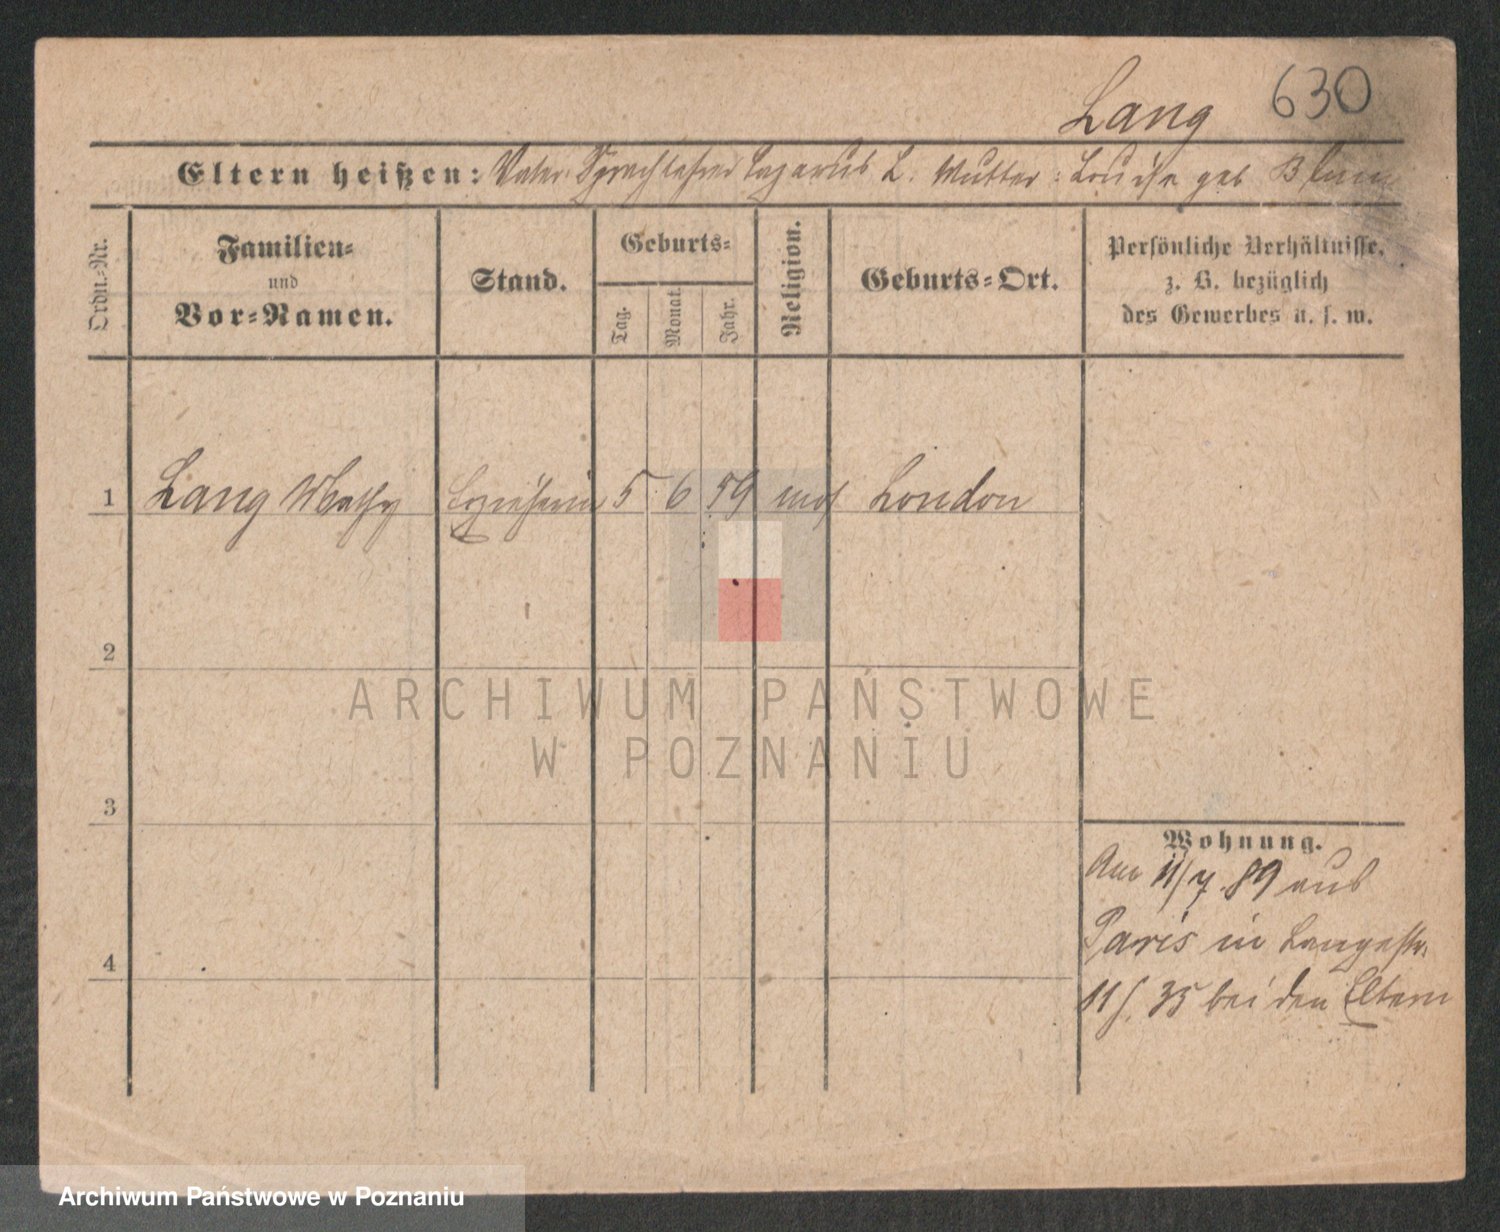 Lang 630
Eltern heißen: Vater: Sprachlehrer Lazarus L. Mutter: Louise geb
Ordn.-Nr.
Familien-
und
Vor-Namen.
Stand.
Geburts-
Tag.
Monat.
Jahr.
Religion.
Geburts-Ort.
Persönliche Verhältnisse,
z. B. bezüglich
des Gewerbes u. s. w.
1 Lang Erzieherin 5 6 59 mos London
2
3
4
Wohnung.
Am 11/7.89 aus
Paris in Langestr.
11 f. 35 bei den Eltern
ARCHIWUM PAŃSTWOWE
W POZNANIU
Archiwum Państwowe w Poznaniu